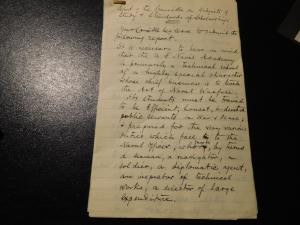 Report of the Committee on Subjects of
Study & Standards of Scholarship
Your Committee beg leave to submit the
following report.
It is necessary to bear in mind
that the U.S. Naval Academy
is primarily a technical school
of a highly special character
whose chief business is to teach
the Art of Naval Warfare.
Its students must be trained
to be efficient, honest, patriotic
public servants in War & Peace,
& prepared for the very various
duties which fall to the
Naval Officer, who is by turns
a seaman, a navigator, a
soldier, a diplomatic agent,
an inspector of technical
works, a director of large
expenditure.